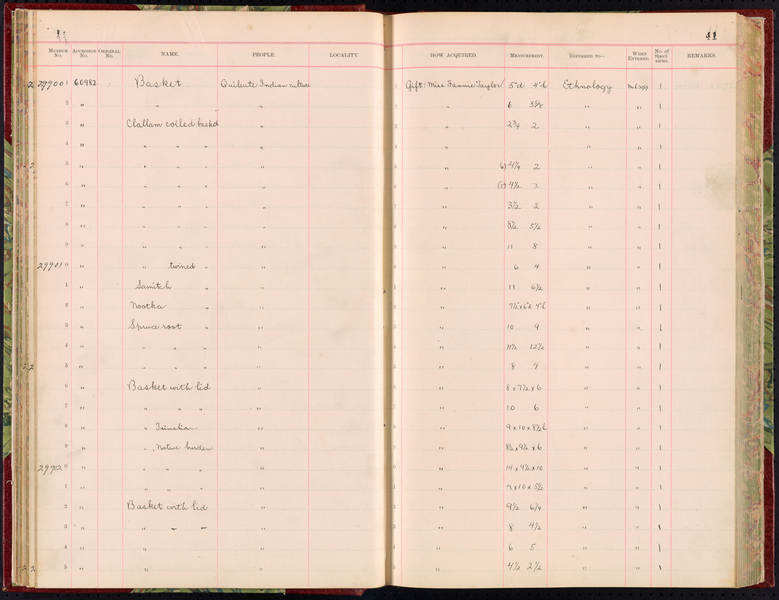 41
MUSEUM No. ACCESSION No. ORIGINAL No. NAME. PEOPLE. LOCALITY. HOW ACQUIRED. MEASUREMENT. REFERRED TO— WHEN ENTERED. No. of Specimens. REMARKS.
299001 60982 Basket Quileute Indian culture Gift: Miss Fannie Taylor 5"d 4"h Ethnology 1
2 " " " " 6 " " 1
3 " Clallam coiled basket " " 2¾ 2 " " 1
4 " " " " " " " " 1
5 " " " " " " 4¼ 2 " " 1
6 " " " " " " 4½ 3 " " 1
7 " " " " " " 3½ 2 " " 1
8 " " " " " " 8½ 5½ " " 1
9 " " " " " " 11 8 " " 1
299010 " " twined " " " 6 4 " " 1
1 " Sanitch " " " 11 6½ " " 1
2 " Nootka " " " " " 1
3 " Spruce root " " " 10 9 " " 1
4 " " " " " " 11½ 12½ " " 1
5 " " " " " " 8 7 " " 1
6 " Basket with lid " " 8 x 7½ x 6 " " 1
7 " " " " " " 10 6 " " 1
8 " " Tsimshian " " 9 x 10 x 8½h " " 1
9 " " , Native burden " " 8½ x 9½ x 6 " " 1
299020 " " " " " " 14 x 9½ x 10 " " 1
1 " " " " " " 7 x 10 x 5½ " " 1
2 " Basket with lid " " 9½ 6¼ " " 1
3 " " " " " " 8 4½ " " 1
4 " " " " 6 5 " " 1
5 " " " " 4½ 2½ " " 1